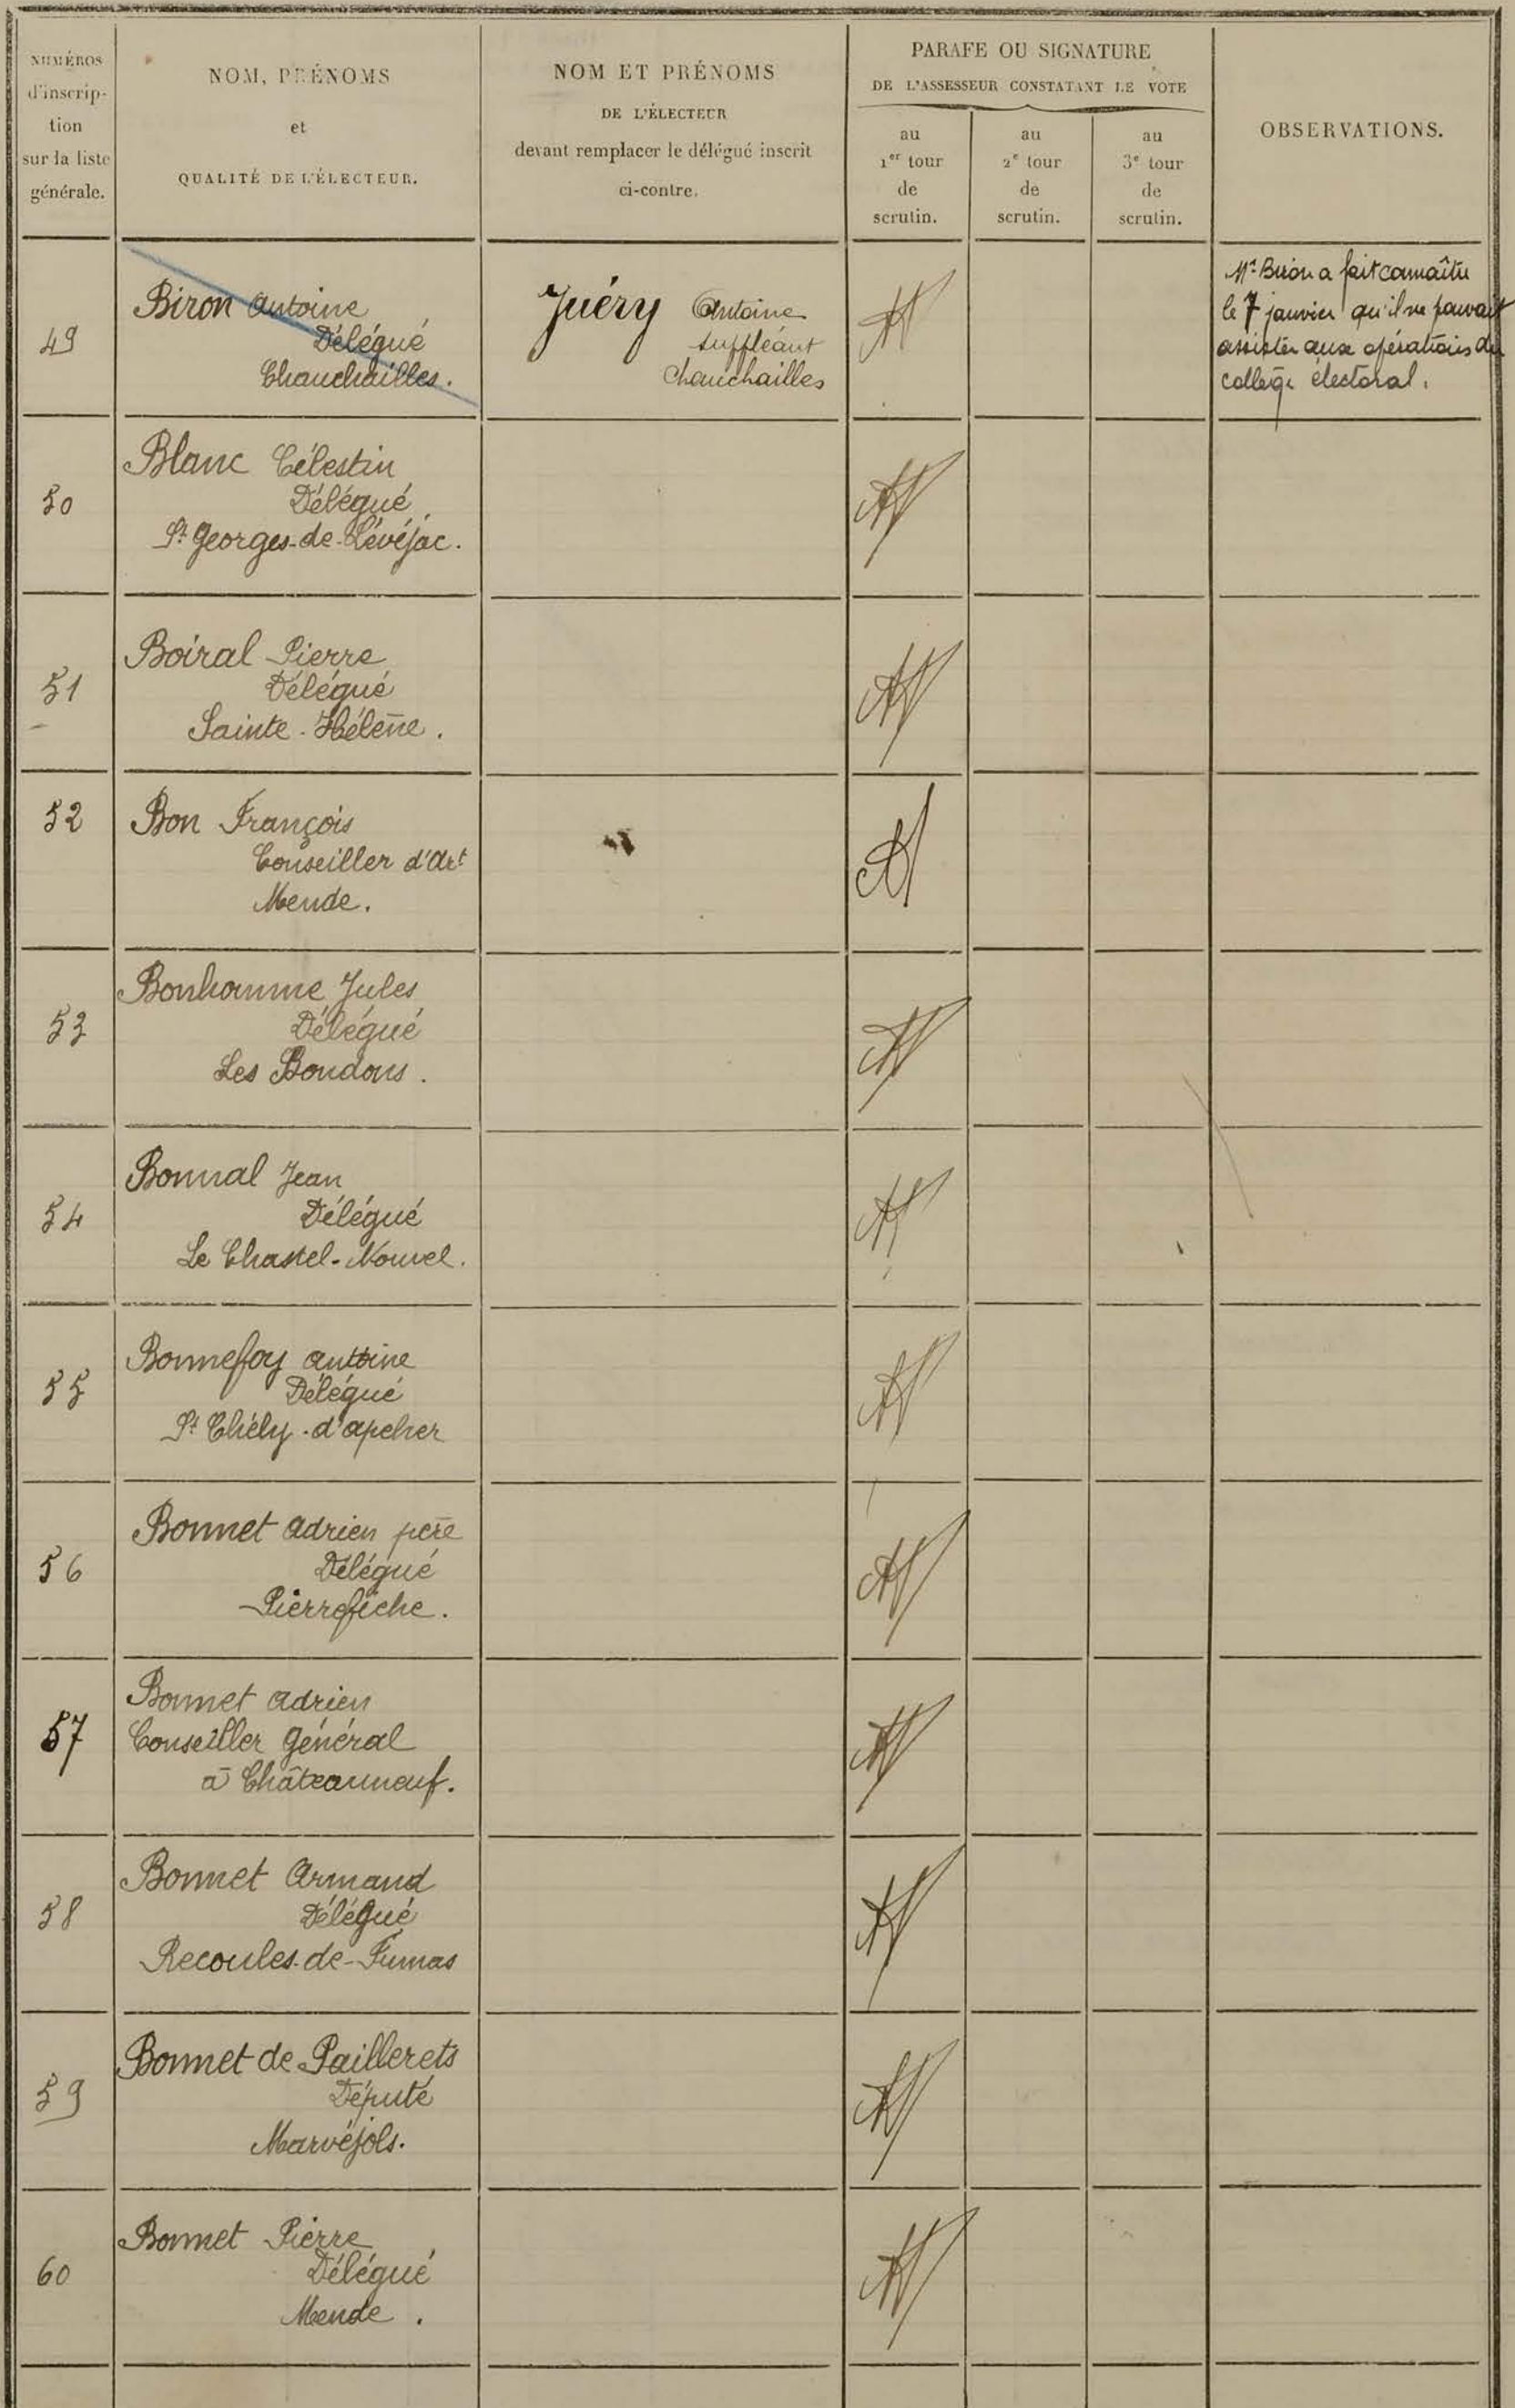 NUMÉROS
d'inscrip-
tion
sur la liste
générale.
NOM, PRÉNOMS
et
QUALITÉ DE L'ÉLECTEUR.
NOM ET PRÉNOMS
DE L'ÉLECTEUR
devant remplacer le délégué inscrit
ci-contre.
PARAFE OU SIGNATURE
DE L'ASSESSEUR CONSTATANT LE VOTE
au
1er tour
de
scrutin.
au
2e tour
de
scrutin.
au
3e tour
de
scrutin.
OBSERVATIONS.
49
Biron Antoine
Délégué
Chauchailles.
Juéry Antoine
suppléant
Chauchailles
Mr Biron a fait connaître
le 7 janvier qu'il ne pouvait
assister aux opérations du
collège électoral.
50
Blanc Célestin
Délégué
St Georges-de-Lévéjac.
51
Boiral Pierre
Délégué
Sainte-Hélène.
52
Bon François
Conseiller d'Art
Mende.
53
Bonhomme Jules
Délégué
Les Bondons.
54
Bonnal Jean
Délégué
Le Chastel-Nouvel.
55
Bonnefoy Antoine
Délégué
St Chély-d'apcher
56
Bonnet Adrien père
Délégué
Pierrefiche.
57
Bonnet Adrien
Conseiller Général
à Châteauneuf.
58
Bonnet Armand
Délégué
Recoules-de-Fumas
59
Bonnet de Paillerets
Député
Marvéjols.
60
Bonnet Pierre
Délégué
Mende.